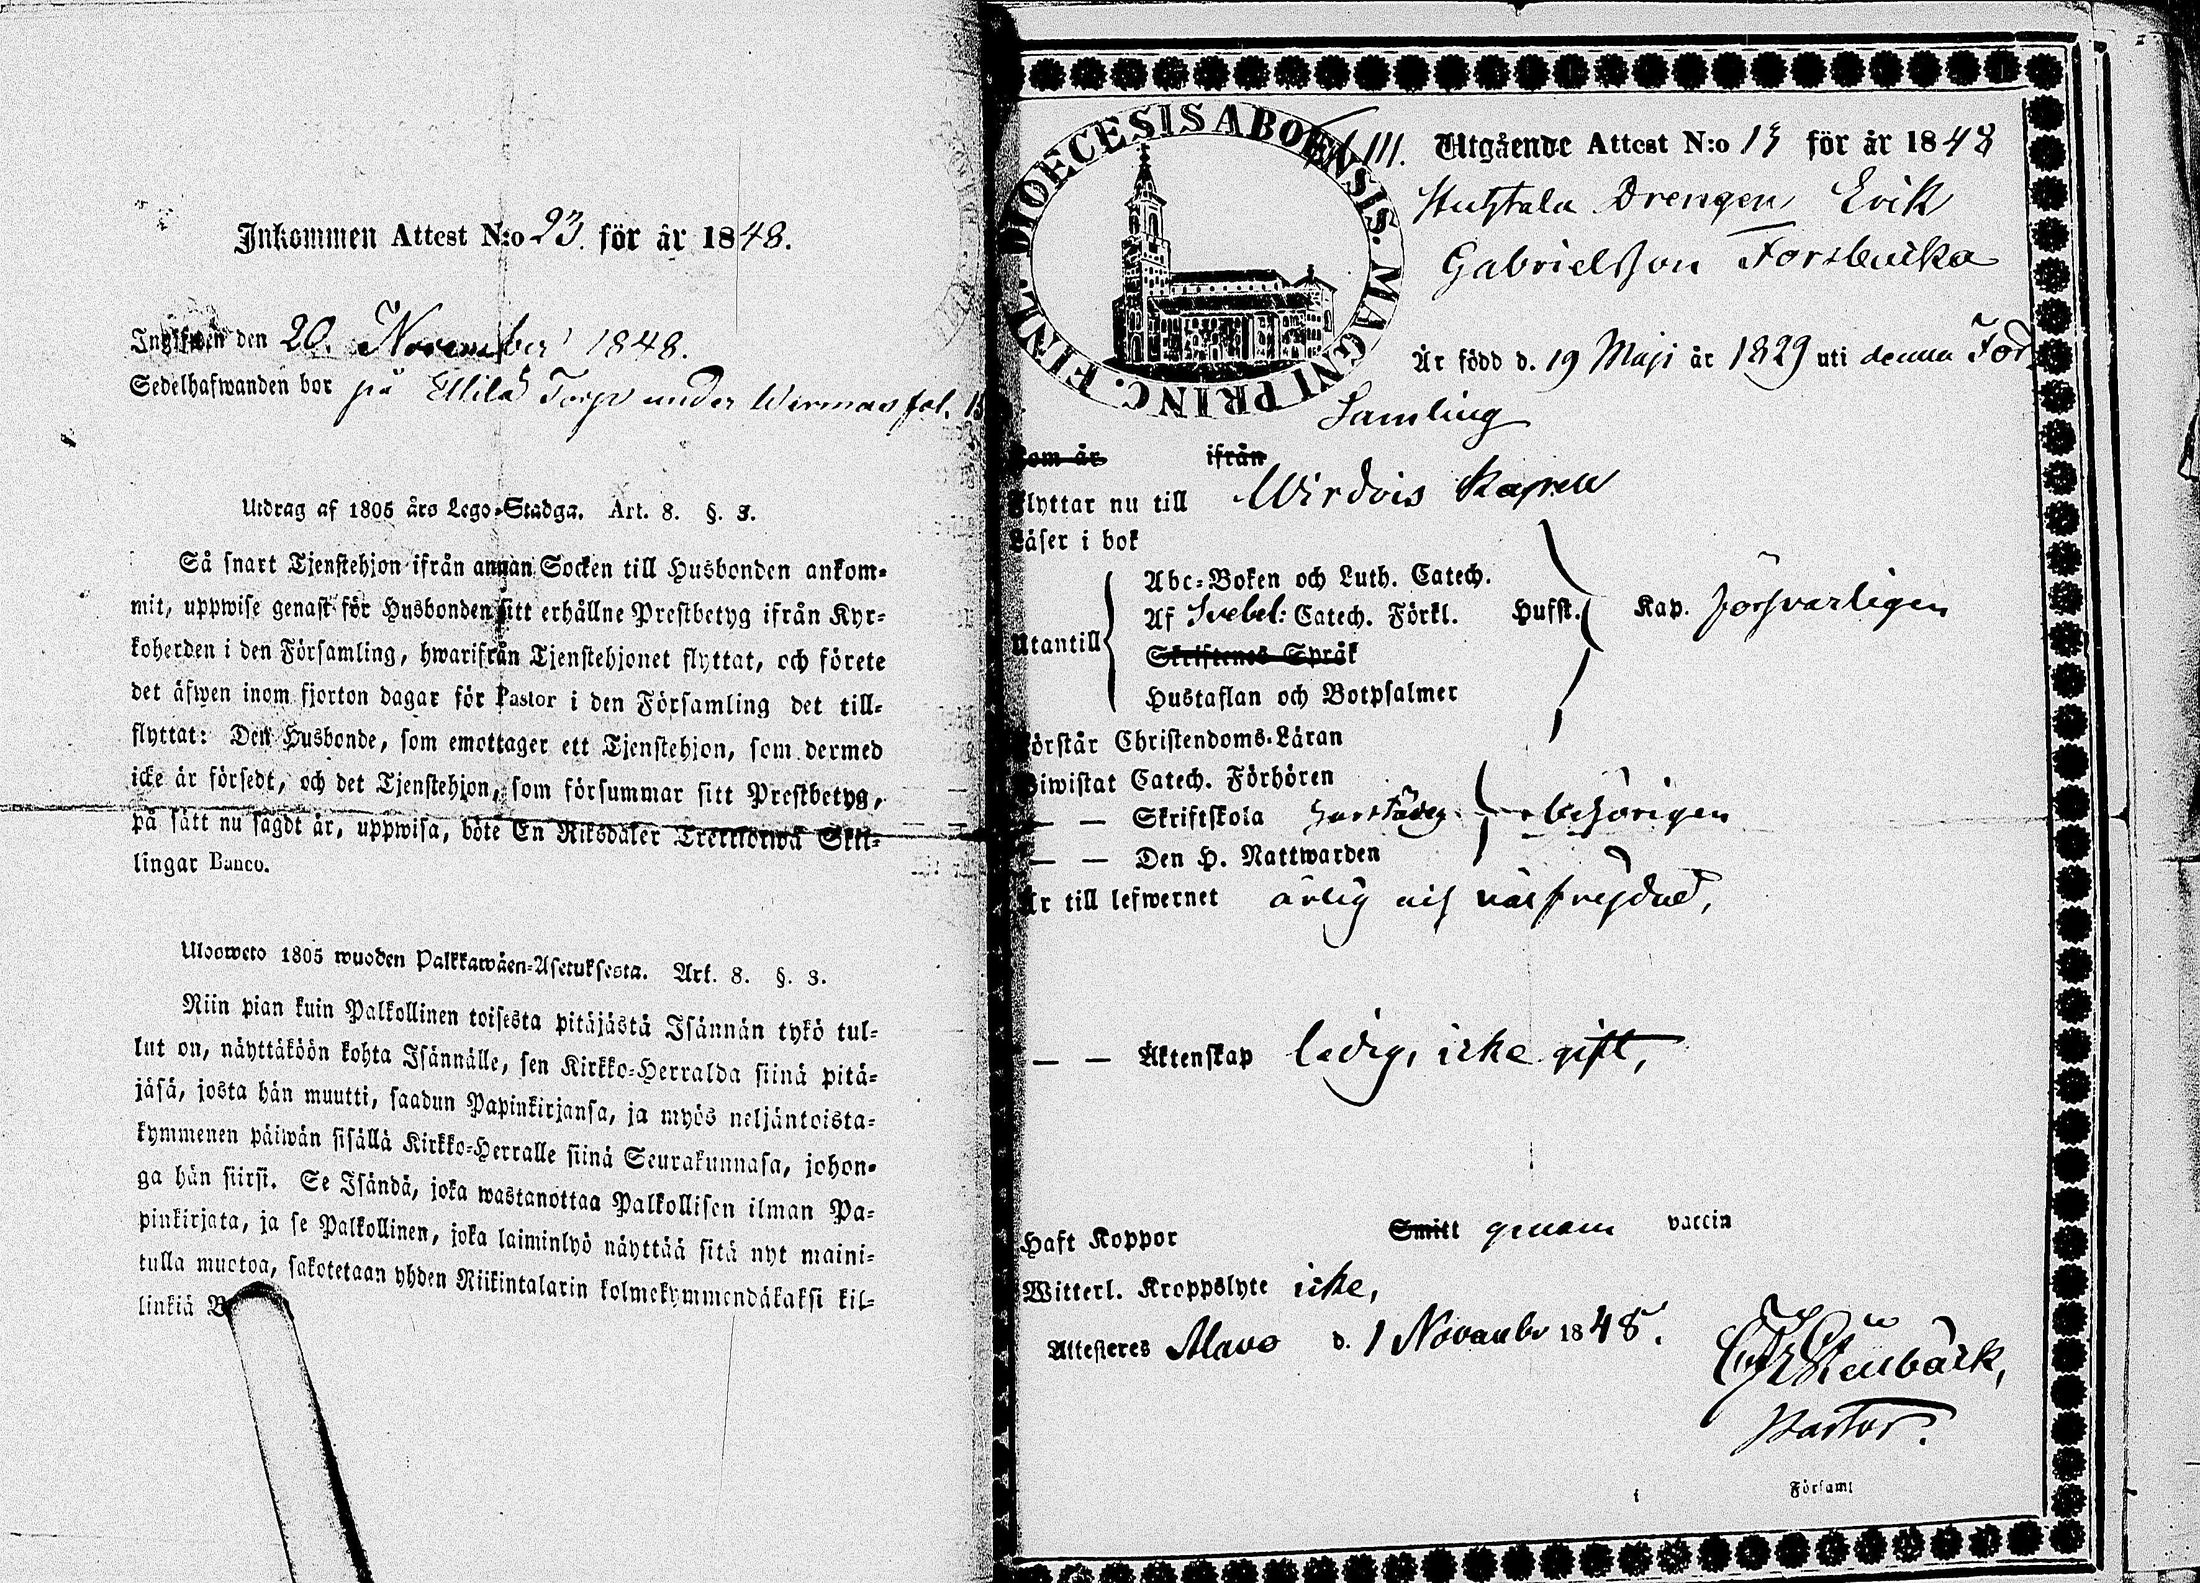 Inkommen Attest N:o 23. för år 1848.
Ingifwen den 20. November 1848.
Sedelhafwanden bor på Ellilä Torp under Wirmas fol.
Utdrag af 1805 års Lego-Stadga. Art. 8. §. 3.
Så snart Tjenstehjon ifrån annan Socken till Husbonden ankom-
mit, uppwise genast för Husbonden sitt erhållne Prestbetyg ifrån Kyr-
koherden i den Församling, hwarifrån Tjenstehjonet flyttat, och förete
det äfwen inom fjorton dagar för Pastor i den Församling det till-
flyttat: Den Husbonde, som emottager ett Tjenstehjon, som dermed
icke är försedt, och det Tjenstehjon, som försummar sitt Prestbetyg,
på sätt nu sagdt är, uppwisa, böte En Riksdaler Trettiotwå Skil-
lingar Banco.
Ulosweto 1805 wuoden Palkkawäen-Asetuksesta. Art. 8. §. 3.
Niin pian kuin Palkollinen toisesta pitäjästä Isännän tykö tul-
lut on, näyttäköön kohta Isännälle, sen Kirkko-Herralda siinä pitä-
jäsä, josta hän muutti, saadun Papinkirjansa, ja myös neljäntoista-
kymmenen päiwän sisällä Kirkko-Herralle siinä Seurakunnasa, johon-
ga hän siirsi. Se Isändä, joka wastanottaa Palkollisen ilman Pa-
pinkirjata, ja se Palkollinen, joka laiminlyö näyttää sitä nyt maini-
tulla muotoa, sakotetaan yhden Riikintalarin kolmekymmendäkaksi kil-
linkiä B
DIOECESIS ABOËNSIS. MAGNI PRINC. FINL.
III. Utgående Attest N:o 13 för år 1848
Drengen Erik
Gabrielsson Forsbacka
Är född d. 19 Maji år 1829 uti denna För
Samling
Som är ifrån
Flyttar nu till Wirdois Kapell
Läser i bok
Utantill
Abc-Boken och Luth. Catech.
Af Svebel: Catech. Förkl. Husst. Kap. försvarligen
Skriftenes Språk
Hustaflan och Botpsalmer
Förstår Christendoms-Läran
Biwistat Catech. Förhören
— — Skriftskola behörigen
— — Den H. Nattwarden
Är till lefwernet ärlig och välfrejdad,
— — Äktenskap ledig, icke gift,
Haft Koppor Smitt genom vaccin
Witterl. Kroppslyte icke,
Attesteres Alavo d. 1 November 1848.
Stenbäck,
Pastor.
i Församl